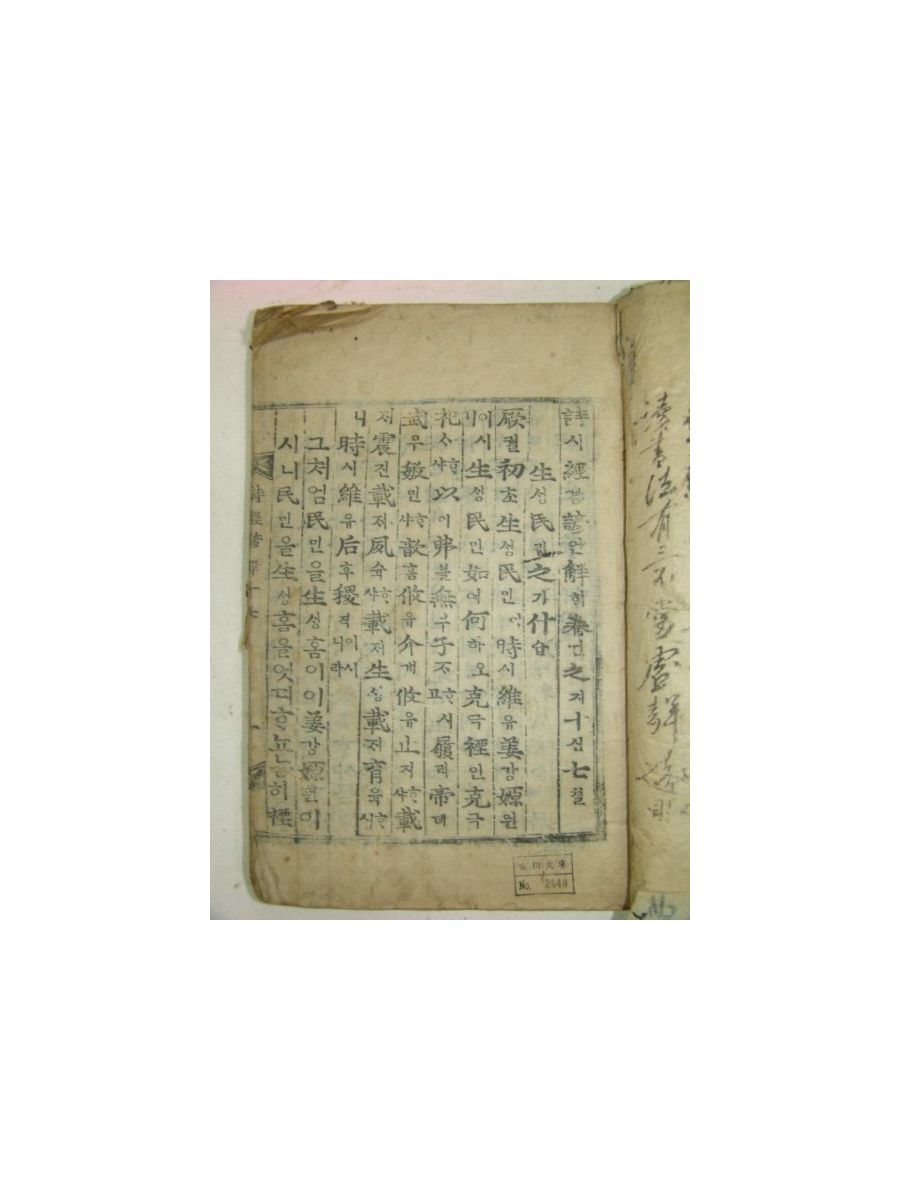 詩시經경諺언解해卷권之지十십七칠
生싱民민之지什습
厥궐初초生싱民민이時시維유姜강嫄원
이시니生싱民민如여何하오克극禋인克극
祀ᄉᆞᄒᆞ샤以이弗블無무子ᄌᆞᄒᆞ시고履리帝뎨
武무敏민ᄒᆞ샤歆흠攸유介개攸유止지ᄒᆞ샤載
ᄌᆡ震진載ᄌᆡ夙슉ᄒᆞ샤載ᄌᆡ生싱載ᄌᆡ育육ᄒᆞ시
니時시維유后후稷직이시니라
그처엄民민을生싱홈이이姜강嫄원이
시니民민을生싱홈을엇디ᄒᆞ뇨능히禋
詩經諺解十七 一
讀書法有三
No. 2640